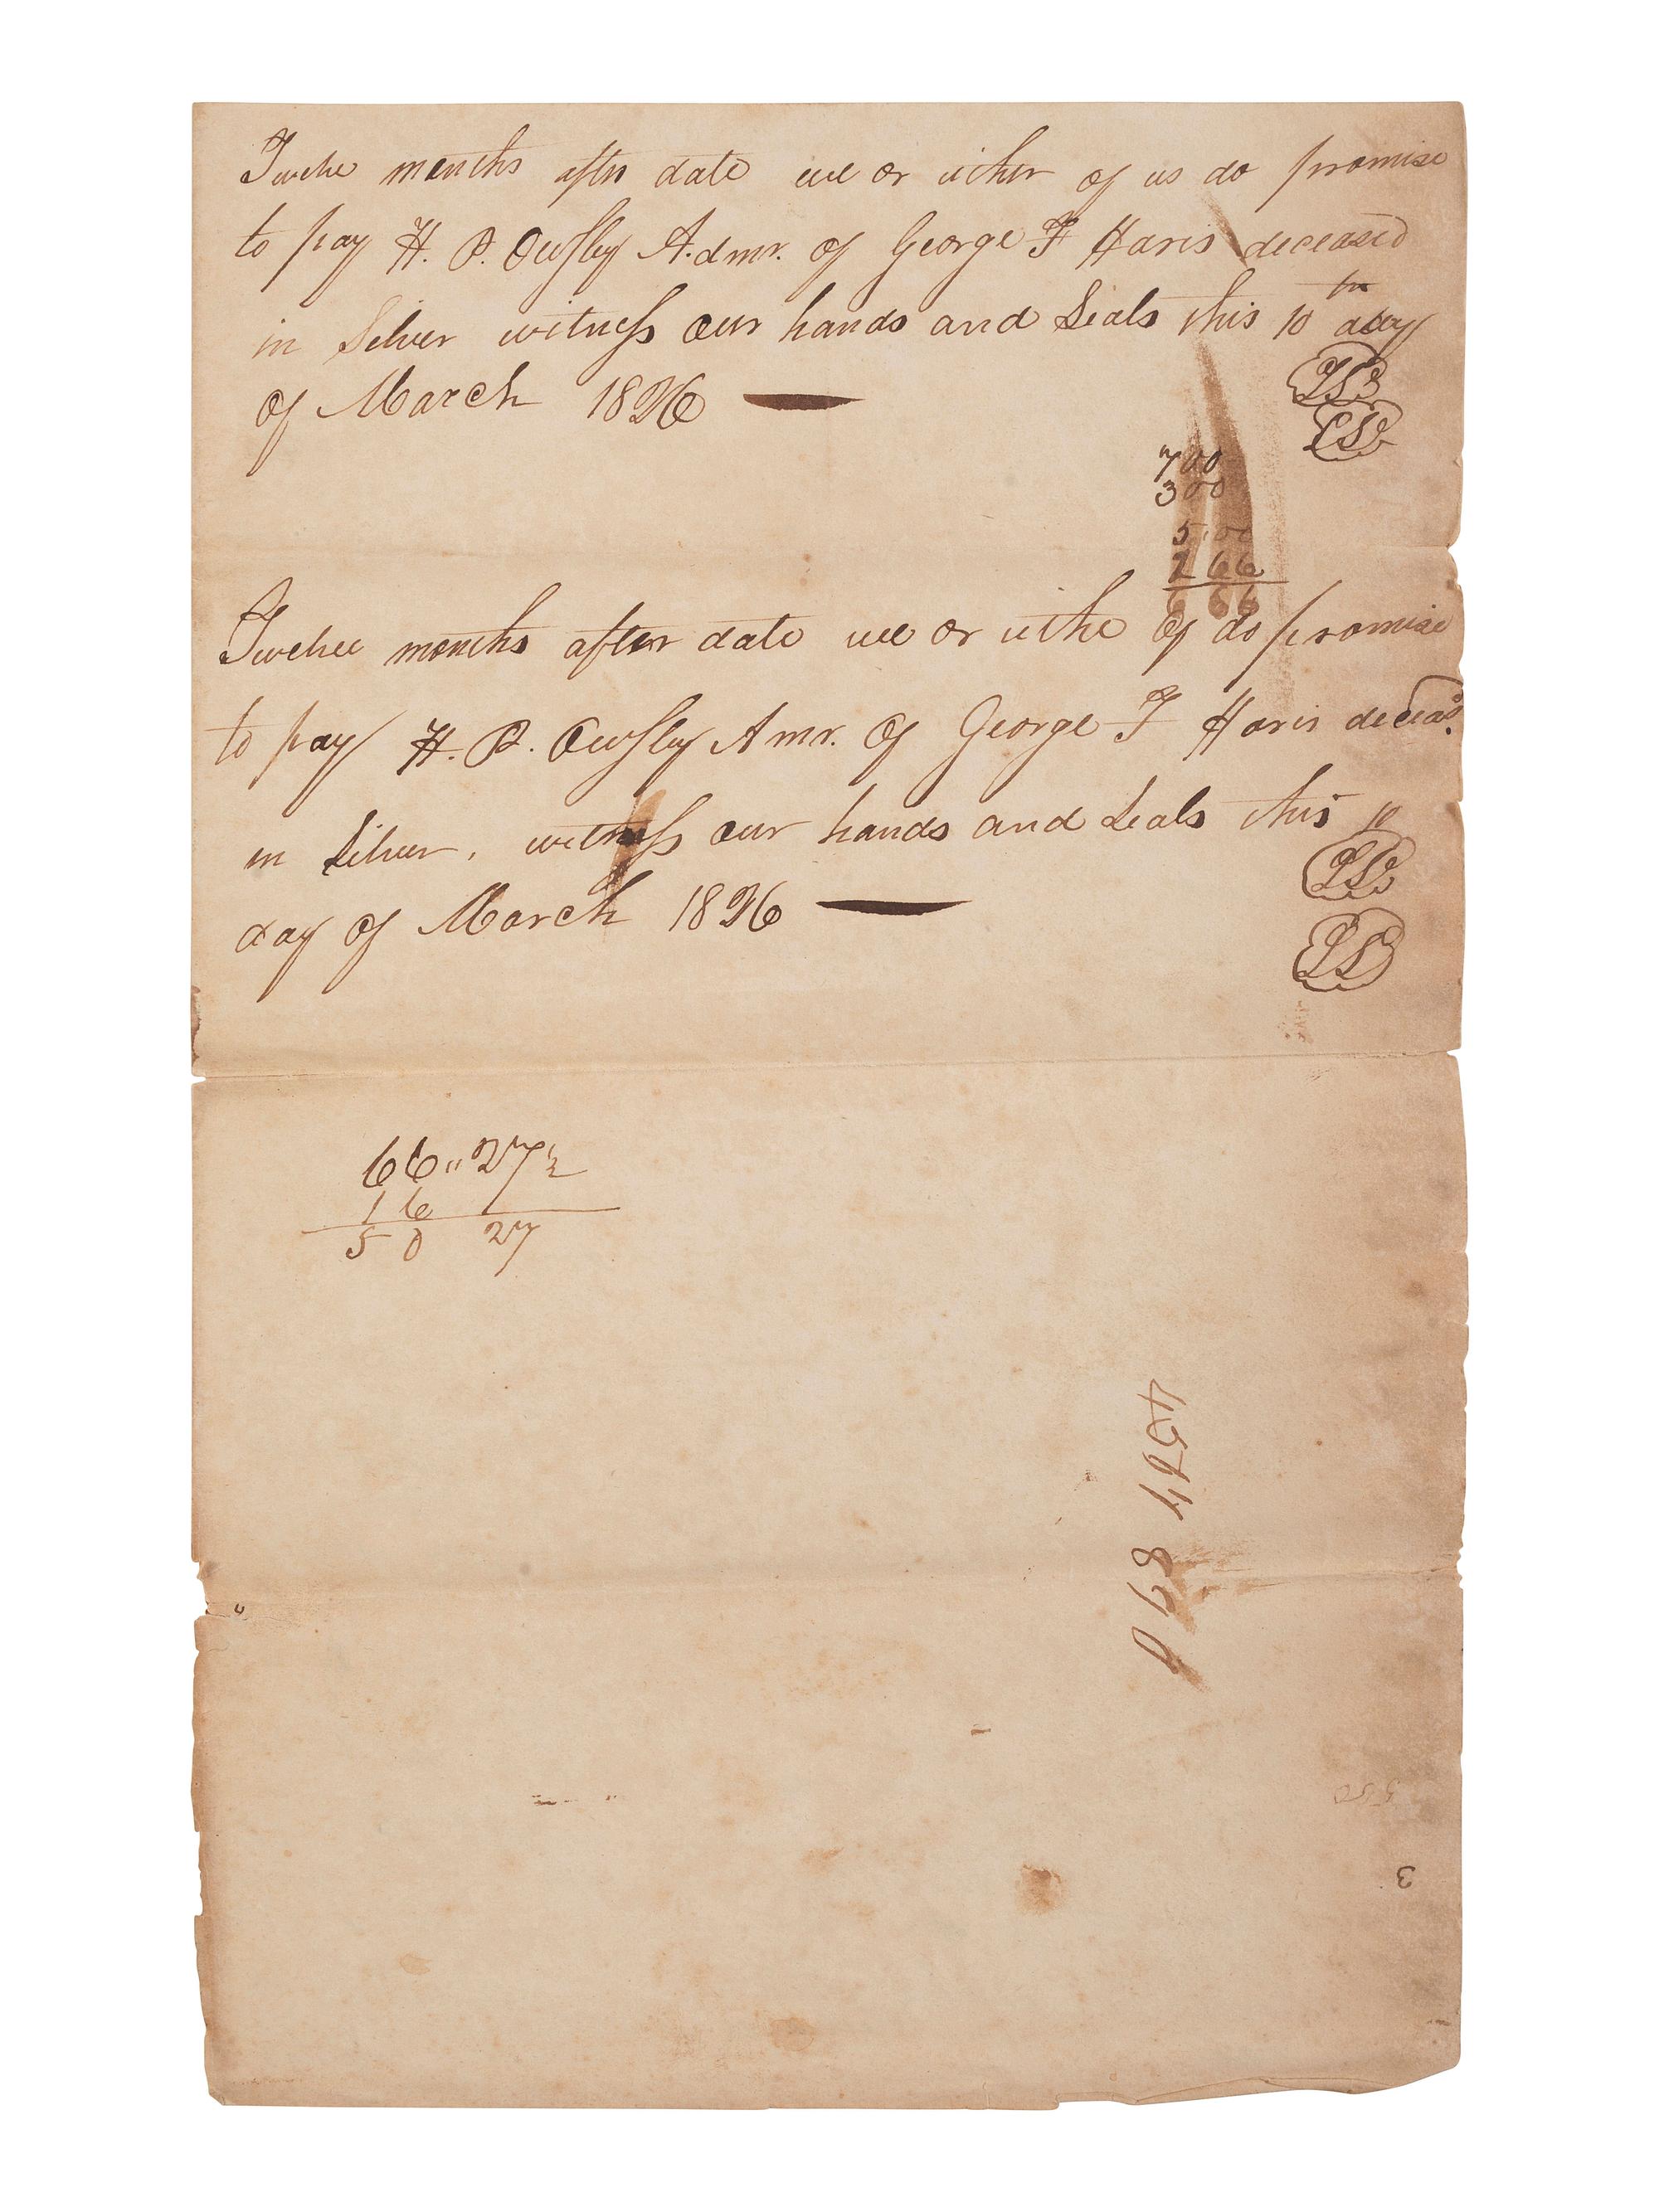 Twelve months after date we or either of us do promise
to pay H. P. Owsley A.dmr. of George F Haris deceased
in Silver witness our hands and Seals this 10th day
of March 1826
LS
LS
700
300
5,00
166
666
Twelvee months after date we or eithe of do promise
to pay H. P. Owsley Amr. of George F Haris deceasd.
in Silver, witness our hands and Seals this 10
day of March 1826
LS
LS
66" 27½
16
50 27
3